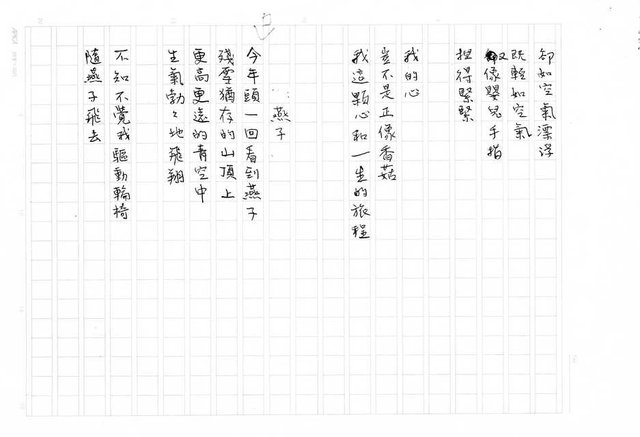 卻如空氣漂浮
既輕如空氣
像嬰兒手指
捏得緊緊
我的心
豈不是正像香菇
我這顆心和一生的旅程
燕子
今年頭一回看到燕子
殘雪猶存的山頂上
更高更遠的青空中
生氣勃々地飛翔
不知不覺我驅動輪椅
隨燕子飛去